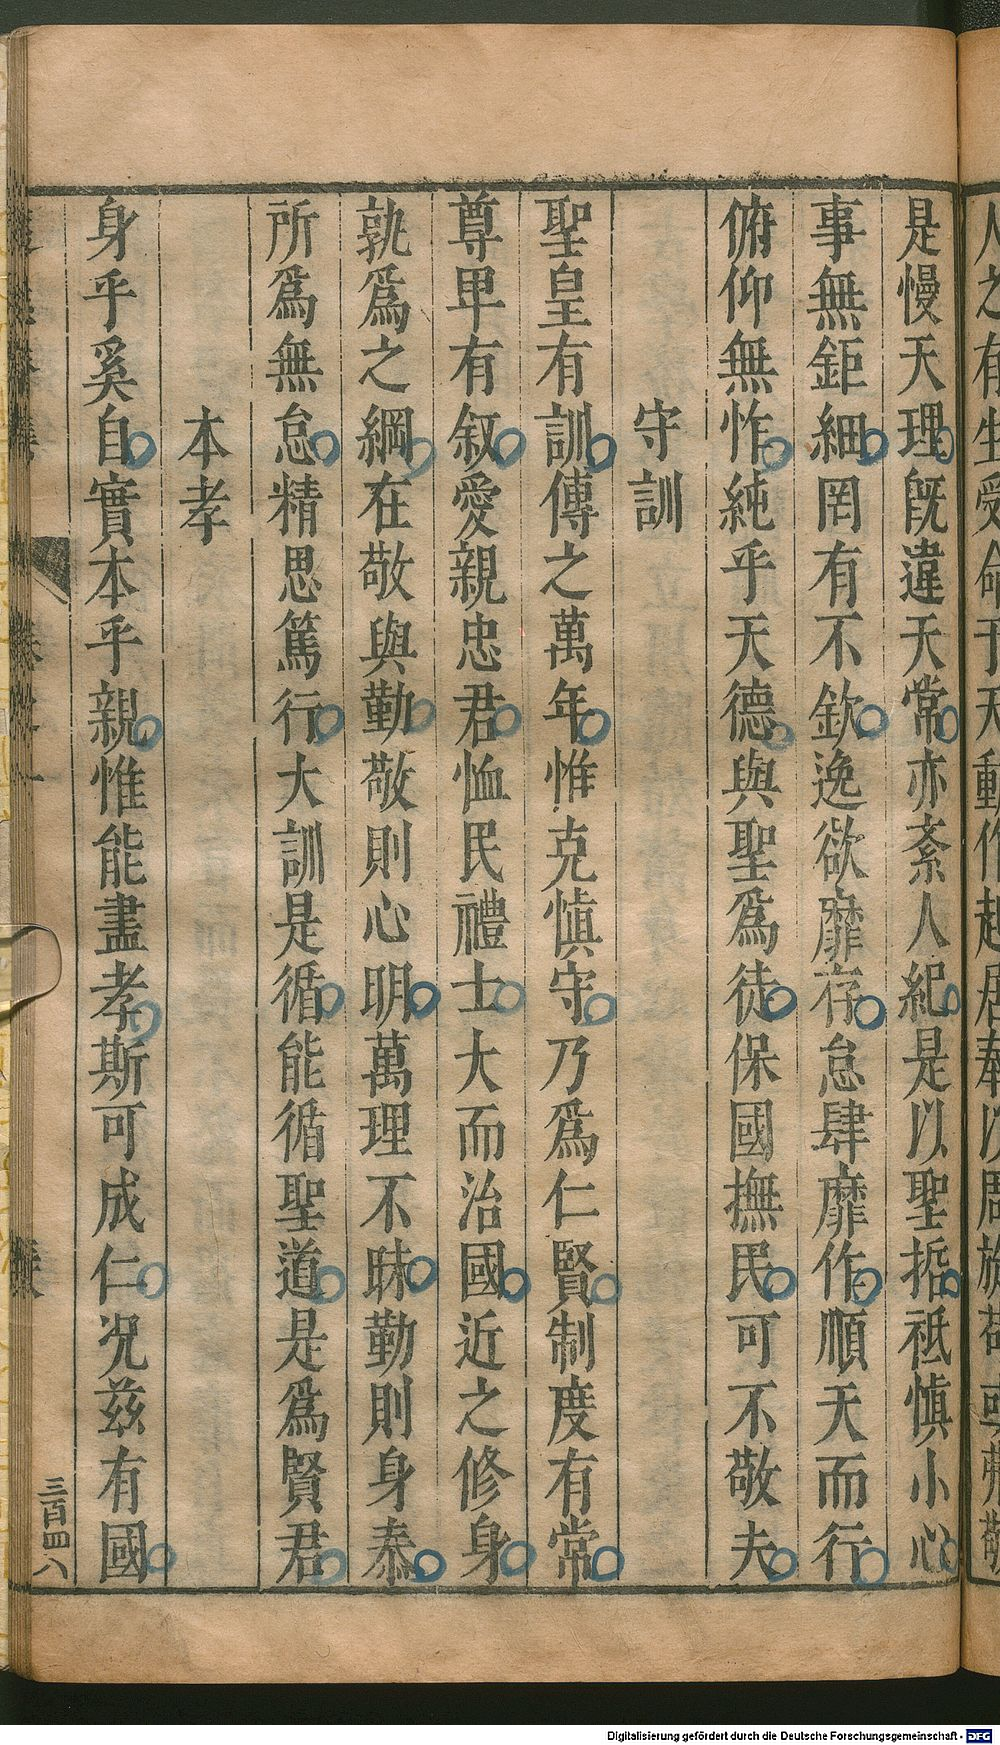 人之有生受命于天動作起居奉以周旋苟或弗敬
是慢天理旣違天常亦紊人紀是以聖哲祗慎小心
事無鉅細罔有不欽逸欲靡存怠肆靡作順天而行
俯仰無怍純乎天德與聖爲徒保國撫民可不敬夫
守訓
聖皇有訓傳之萬年惟克慎守乃爲仁賢制度有常
尊卑有叙愛親忠君恤民禮士大而治國近之修身
孰爲之綱在敬與勤敬則心明萬理不昧勤則身泰
所爲無怠精思篤行大訓是循能循聖道是爲賢君
本孝
身乎奚自實本乎親惟能盡孝斯可成仁况兹有國
三百四八
Digitalisierung gefördert durch die Deutsche Forschungsgemeinschaft - DFG